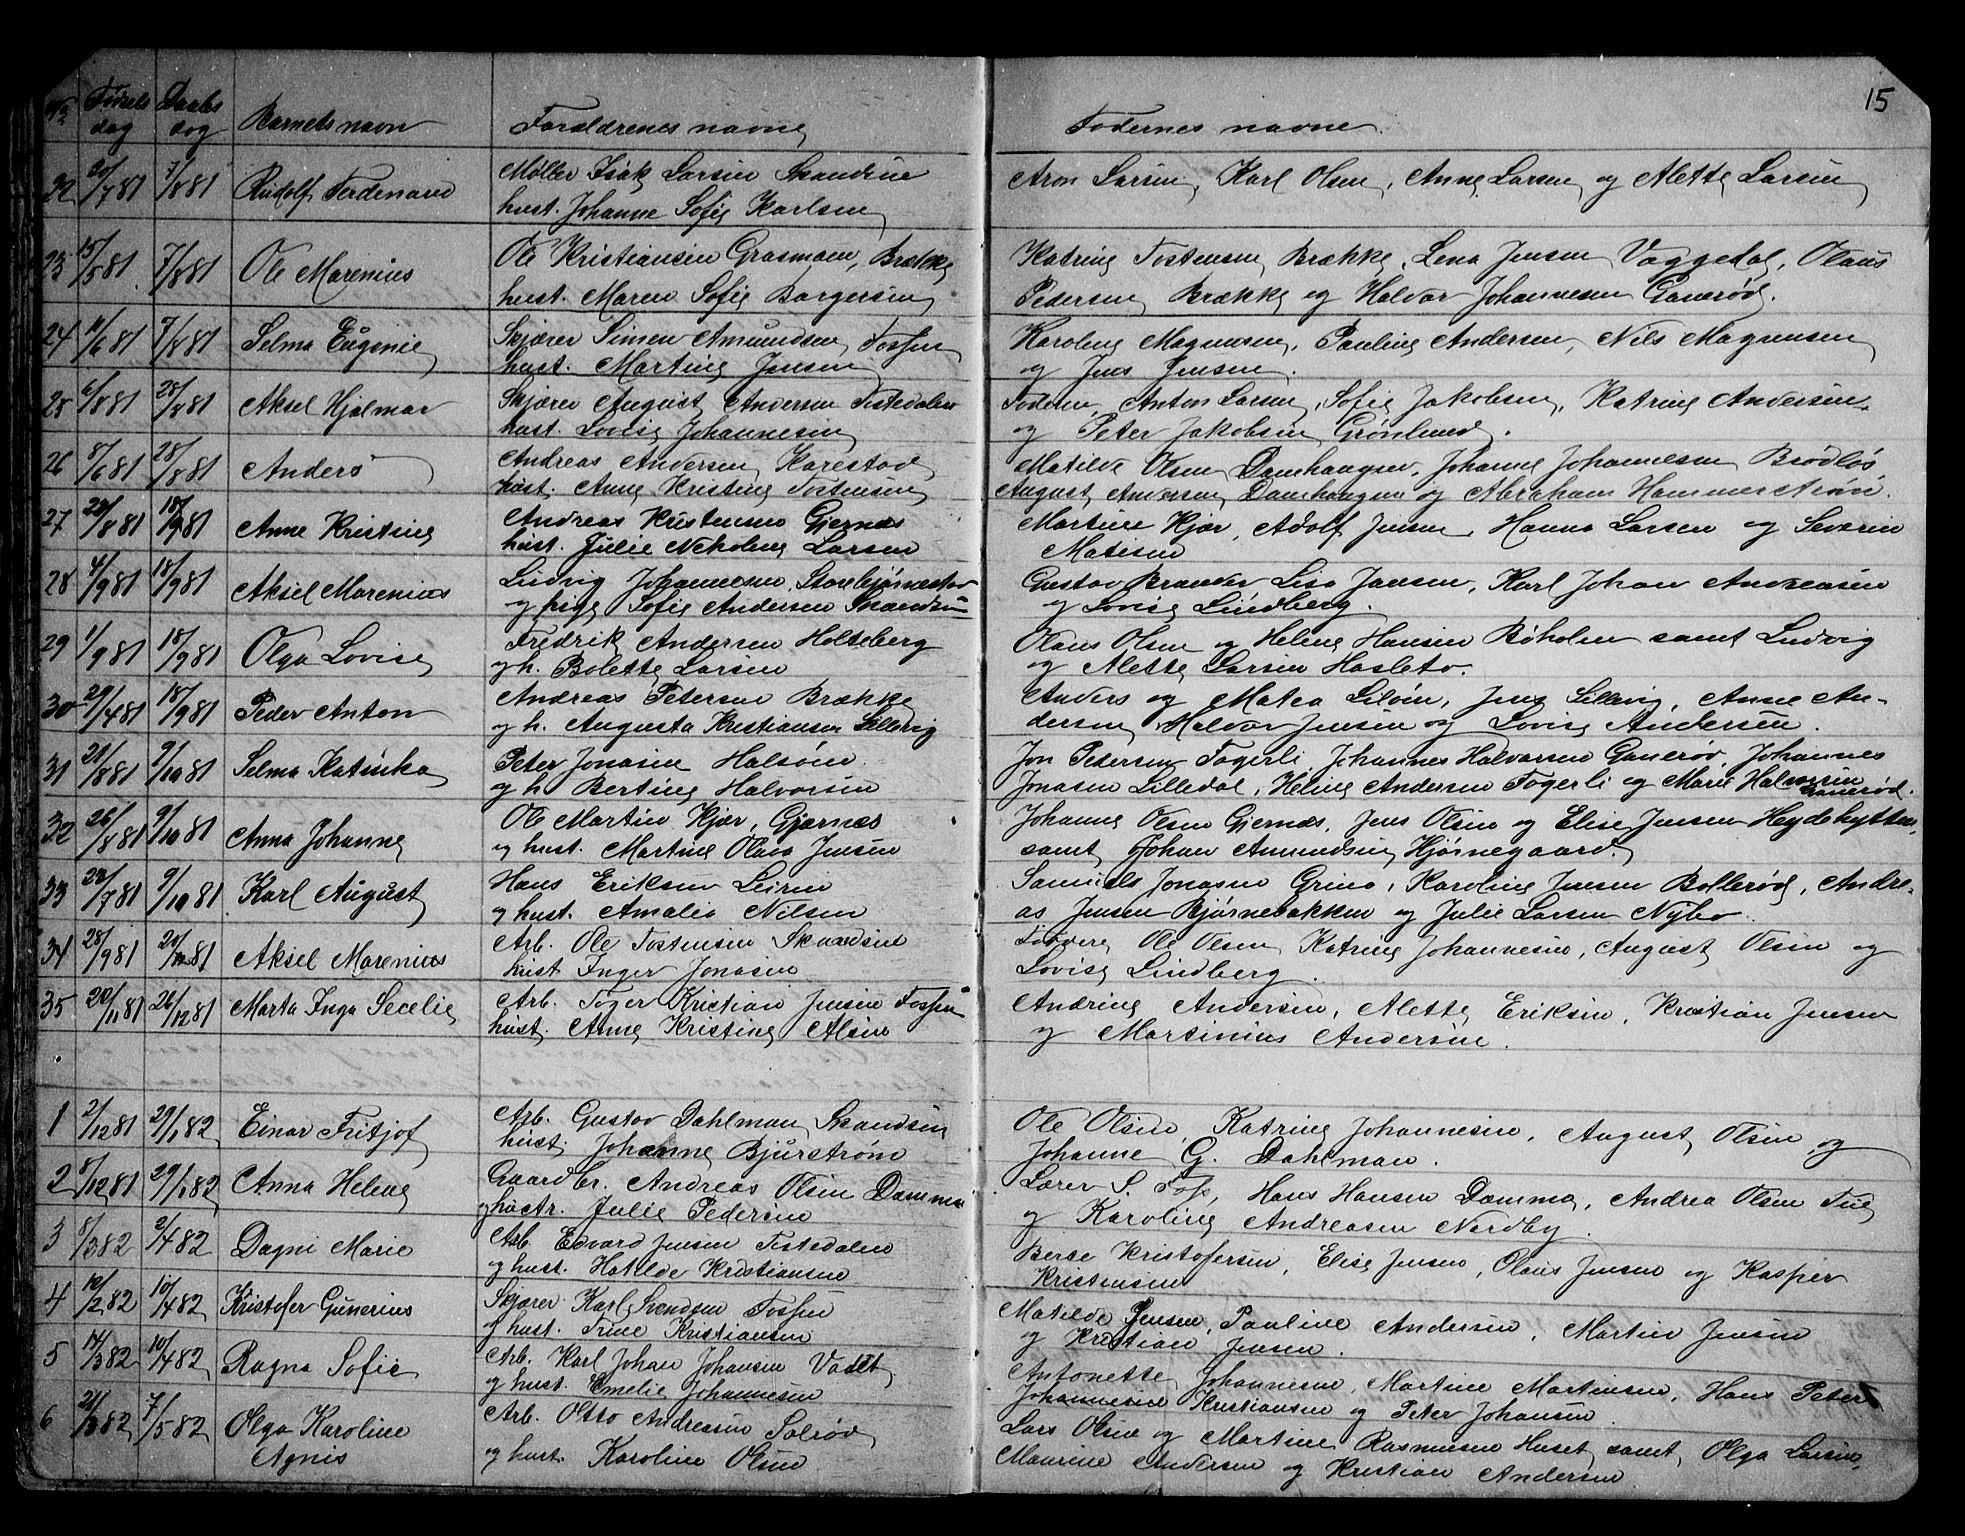 15
No Fødsels dag Daabs dag Barnets navn Forældrenes navne Fadernes navne.
22 20/7 81 7/8 81 Rudolf Ferdenand Møller Isak Larsen Skandsen
hust. Johanne Sofie Karlsen
Aron Larsen, Karl Olsen, Anne Larsen og Alette Larsen
23 15/5 81 7/8 81 Ole Marenius Ole Kristiansen Grasmoen, Brække
hust. Maren Sofie Borgersen
Katrine Tostensen Brække, Lena Jensen Vaggedal, Olaus
Pedersen Brække og Halvor Johannesen Ganerød.
24 11/6 81 7/8 81 Selma Eugenie Skjærer Simen Amundsen Fossen
hust. Martine Jensen
Karoline Magnusen, Pauline Andersen, Nils Magnusen
og Jens Jensen.
25 6/8 81 28/8 81 Aksel Hjalmar Skjærer August Andersen Tistedalen
hust. Lovise Johannesen
Faderen, Anton Larsen, Sofie Jakobsen, Katrine Andersen
og Peter Jakobsen Grønlund.
26 8/6 81 28/8 81 Anders Andreas Andersen Karestad
hust. Anne Kristine Tostensen
Matilde Olsen Damhaugen, Johanne Johannesen Brødløs,
August Andersen Damhaugen og Abraham Hammerstrøm.
27 28/8 81 18/9 81 Anne Kristine Andreas Kristensen Gjernæs
hust. Julie Nekoline Larsen
Martine Kjær, Adolf Jensen, Hanna Larsen og Severin
Matisen
28 4/9 81 18/9 81 Aksel Marenius Ludvig Johannesen, Storebjørnestad
og pige Sofie Andersen Skandsen
Gustav Brander Lisa Jansen, Karl Johan Andreasen
og Lovise Lindberg.
29 1/9 81 18/9 81 Olga Lovise Fredrik Andersen Holteberg
og h. Bolette Larsen
Olaus Olsen og Helene Hansen Bøholen samt Ludvig
og Alette Larsen Hasleto.
30 29/4 81 18/9 81 Peder Anton Andreas Petersen Brække
og h. Augusta Kristiansen Lillevig
Anders og Matea Liløen, Jens Lillevig, Anne An-
dersen, Halvor Jensen og Lovise Andersen.
31 21/8 81 9/10 81 Selma Katinka Peter Jonasen Halsøen.
og h. Bertine Halvorsen
Jon Pedersen Fagerli, Johannes Halvorsen Ganerød, Johannes
Jonasen Lilledal, Heline Andersen Fagerli og Marie Halvorsen
Ganerød.
32 26/8 81 9/10 81 Anna Johanne Ole Martin Kjær, Gjærnæs
og hust. Martine Olava Jensen
Johanne Olsen Gjernæs, Jens Olsen og Elise Jensen Heydehytten,
samt Johan Amundsen Hjørnegaard.
33 23/7 81 9/10 81 Karl August Hans Eriksen Leiren
og hust. Amalia Nilsen
Samuels Jonasen Grina, Karoline Jensen Bollerød, Andre-
as Jensen Bjørnebakken og Julie Larsen Nybo.
34 28/9 81 20/11 81 Aksel Marenius Arb. Ole Tostensen Skandsen
hust Inger Jonasen
Ole Olsen, Katrine Johannesen, August Olsen og
Lovise Lindberg.
35 20/11 81 26/12 81 Marta Inga Secelie Arb. Toger Kristian Jensen Fossen
hust. Anne Kristine Alsen
Andrine Andersen, Alette Eriksen, Kristian Jensen
og Martinius Andersen.
1 2/12 81 29/1 82 Einar Fritjof Arb. Gustav Dahlman Skandsen
hust. Johanne Bjurstrøm
Ole Olsen, Katrine Johannesen, August Olsen og
Johanne G. Dahlman.
2 8/12 81 29/1 82 Anna Helene Gaardbr. Andreas Olsen Damma
og hustr. Julie Pedersen
Lærer S. Fos, Hans Hansen Damma, Andrea Olsen Tue
og Karoline Andreasen Nordby.
3 8/3 82 2/4 82 Dagni Marie Arb. Edvard Jensen Tistedalen
og hust. Hatilde Kristiansen
Berte Kristofersen, Elise Jensen, Olaus Jensen og Kasper
Kristensen
4 12/2 82 10/4 82 Kristofer Gunerius Skjærer Karl Svendsen Fossen
og hust. Trine Kristiansen
Matilde Jensen, Pauline Andersen, Martin Jensen
og Kristian Jensen.
5 14/3 82 10/4 82 Ragna Sofie Arb. Karl Johan Johansen Vadet
og hust. Emelie Johannesen
Antonette Johannesen, Martine Martinsen, Hans Peter
Johannesen Kristiansen og Peter Johansen.
6 21/3 82 7/5 82 Olga Karoline
Agnis Arb. Otto Andreasen Solrød
og hust. Karoline Olsen
Lars Olsen og Martine Rasmussen Huset samt Olga Larsen,
Maurine Andersen og Kristian Andersen